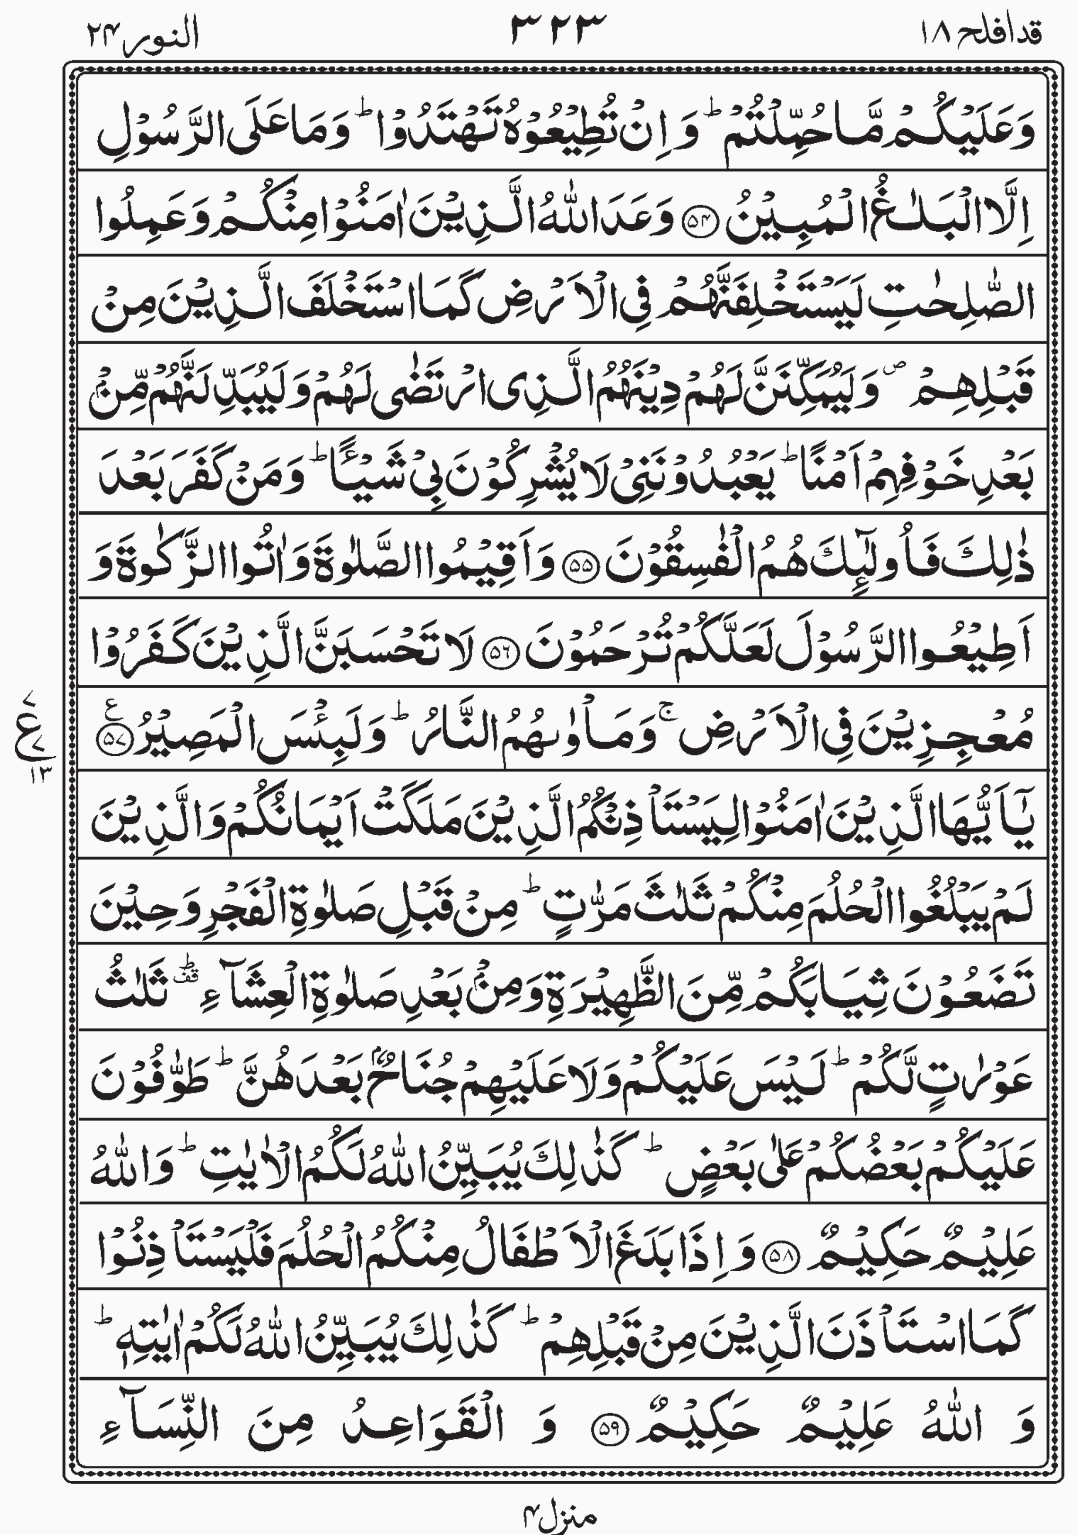 قد افلح ١٨
٣٢٣
النور ٢٤
وَعَلَيْكُمْ مَّا حُمِّلْتُمْ ؕ وَ اِنْ تُطِيْعُوْهُ تَهْتَدُوْا ؕ وَمَا عَلَى الرَّسُوْلِ
اِلَّا الْبَلٰغُ الْمُبِيْنُ ﴿۵۴﴾ وَعَدَ اللّٰهُ الَّذِيْنَ اٰمَنُوْا مِنْكُمْ وَعَمِلُوا
الصّٰلِحٰتِ لَيَسْتَخْلِفَنَّهُمْ فِى الْاَرْضِ كَمَا اسْتَخْلَفَ الَّذِيْنَ مِنْ
قَبْلِهِمْ ۪ وَلَيُمَكِّنَنَّ لَهُمْ دِيْنَهُمُ الَّذِى ارْتَضٰى لَهُمْ وَلَيُبَدِّلَنَّهُمْ مِّنْۢ
بَعْدِ خَوْفِهِمْ اَمْنًا ؕ يَعْبُدُوْنَنِىْ لَا يُشْرِكُوْنَ بِىْ شَيْـًٔا ؕ وَمَنْ كَفَرَ بَعْدَ
ذٰلِكَ فَاُولٰٓئِكَ هُمُ الْفٰسِقُوْنَ ﴿۵۵﴾ وَاَقِيْمُوا الصَّلٰوةَ وَاٰتُوا الزَّكٰوةَ وَ
اَطِيْعُوا الرَّسُوْلَ لَعَلَّكُمْ تُرْحَمُوْنَ ﴿۵۶﴾ لَا تَحْسَبَنَّ الَّذِيْنَ كَفَرُوْا
مُعْجِزِيْنَ فِى الْاَرْضِ ۚ وَمَاْوٰىهُمُ النَّارُ ؕ وَلَبِئْسَ الْمَصِيْرُ ﴿۵۷﴾ ع
٧
ع
٧
١٣
يٰۤاَيُّهَا الَّذِيْنَ اٰمَنُوْا لِيَسْتَاْذِنْكُمُ الَّذِيْنَ مَلَكَتْ اَيْمَانُكُمْ وَالَّذِيْنَ
لَمْ يَبْلُغُوا الْحُلُمَ مِنْكُمْ ثَلٰثَ مَرّٰتٍ ؕ مِنْ قَبْلِ صَلٰوةِ الْفَجْرِ وَحِيْنَ
تَضَعُوْنَ ثِيَابَكُمْ مِّنَ الظَّهِيْرَةِ وَمِنْۢ بَعْدِ صَلٰوةِ الْعِشَآءِ ؕ قف ثَلٰثُ
عَوْرٰتٍ لَّكُمْ ؕ لَيْسَ عَلَيْكُمْ وَلَا عَلَيْهِمْ جُنَاحٌۢ بَعْدَهُنَّ ؕ طَوّٰفُوْنَ
عَلَيْكُمْ بَعْضُكُمْ عَلٰى بَعْضٍ ؕ كَذٰلِكَ يُبَيِّنُ اللّٰهُ لَكُمُ الْاٰيٰتِ ؕ وَاللّٰهُ
عَلِيْمٌ حَكِيْمٌ ﴿۵۸﴾ وَ اِذَا بَلَغَ الْاَطْفَالُ مِنْكُمُ الْحُلُمَ فَلْيَسْتَاْذِنُوْا
كَمَا اسْتَاْذَنَ الَّذِيْنَ مِنْ قَبْلِهِمْ ؕ كَذٰلِكَ يُبَيِّنُ اللّٰهُ لَكُمْ اٰيٰتِهٖ ؕ
وَ اللّٰهُ عَلِيْمٌ حَكِيْمٌ ﴿۵۹﴾ وَ الْقَوَاعِدُ مِنَ النِّسَآءِ
منزل ۴